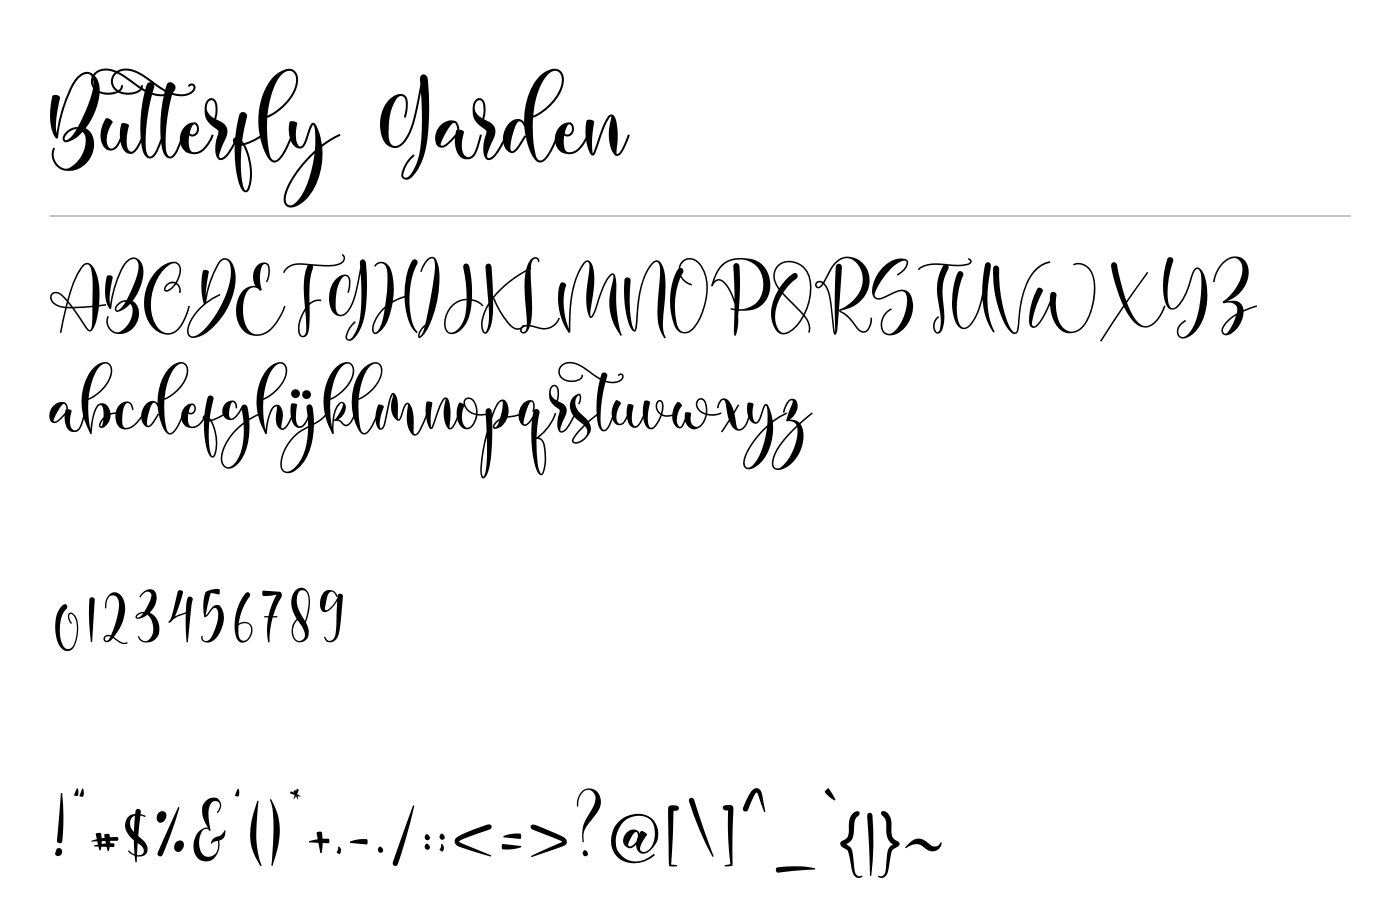 Butterfly Garden
ABCDEFGHIJKLMNOPQRSTUVWXYZ
abcdefghijklmnopqrstuvwxyz
0123456789
!"#$%&'()*+,-./:;<=>?@[\]^_`{|}~